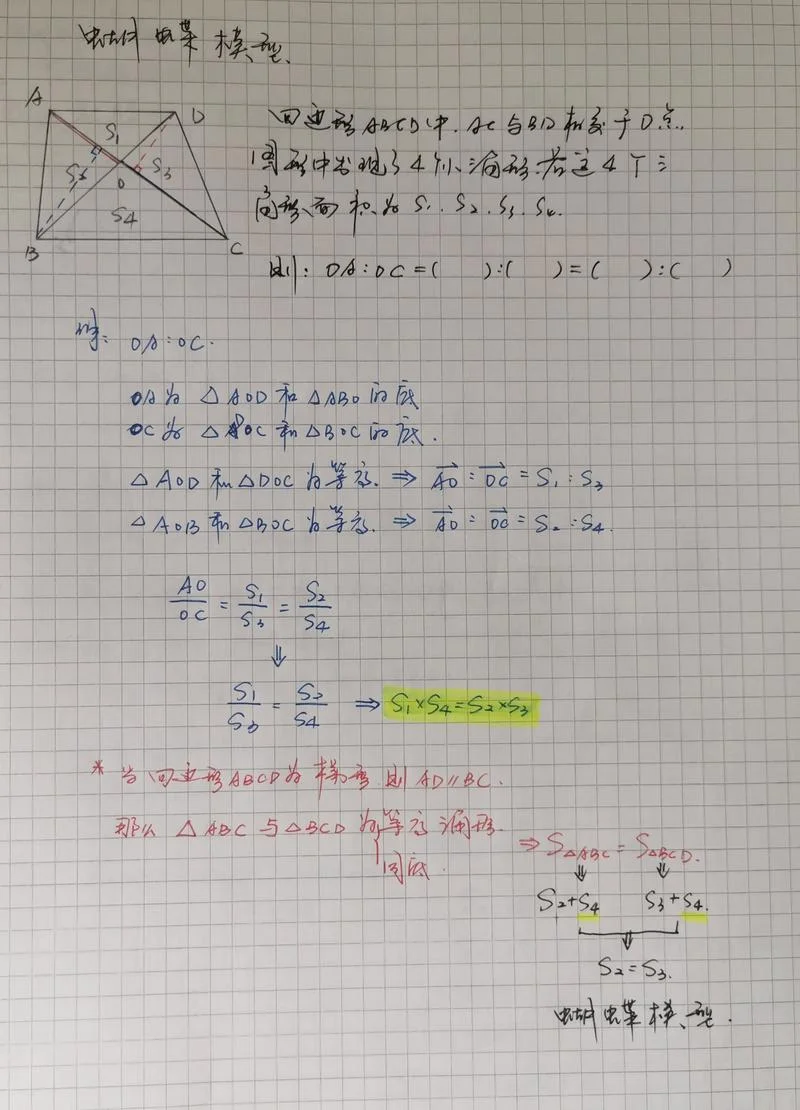 蝴蝶模型
A
D
S₁
S₂
S₃
O
S₄
B
C
四边形ABCD中, AC与BD相交于O点.
图形中出现了4个小三角形.若这4个三
角形面积为 S₁.S₂.S₃.S₄.
则: OA:OC=( ):( )=( ):( )
解: OA:OC.
OA为△AOD和△ABO的底
OC为△DOC和△BOC的底.
△AOD和△DOC为等高. ⇒ AO:OC=S₁:S₃
△AOB和△BOC为等高. ⇒ AO:OC=S₂:S₄.
AO/OC = S₁/S₃ = S₂/S₄
⇓
S₁/S₃ = S₂/S₄ ⇒ S₁×S₄=S₂×S₃
* 当四边形ABCD为梯形.则AD∥BC.
那么 △ABC与△BCD为{等高三角形.
同底.
⇒ S△ABC = S△BCD.
⇓ ⇓
S₂+S₄ S₃+S₄.
⇓
S₂=S₃.
蝴蝶模型.